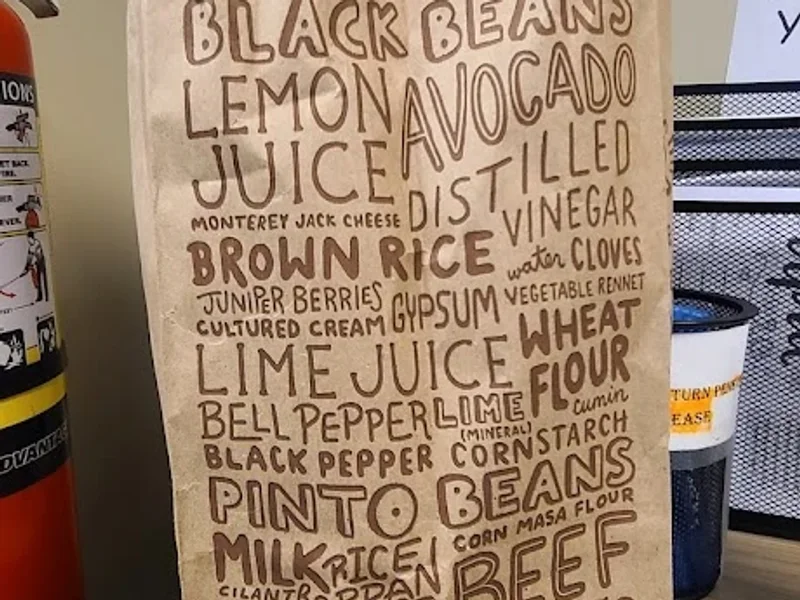 BLACK BEANS
LEMON AVOCADO
JUICE DISTILLED
MONTEREY JACK CHEESE VINEGAR
BROWN RICE water CLOVES
JUNIPER BERRIES GYPSUM VEGETABLE RENNET
CULTURED CREAM WHEAT
LIME JUICE FLOUR
BELL PEPPER LIME cumin
(MINERAL)
BLACK PEPPER CORNSTARCH
PINTO BEANS
CORN MASA FLOUR
MILK RICE BEEF
CILANTRO BRAN
IONS
ET BACK
ADVANTAG
Y
TURN PENS
EASE